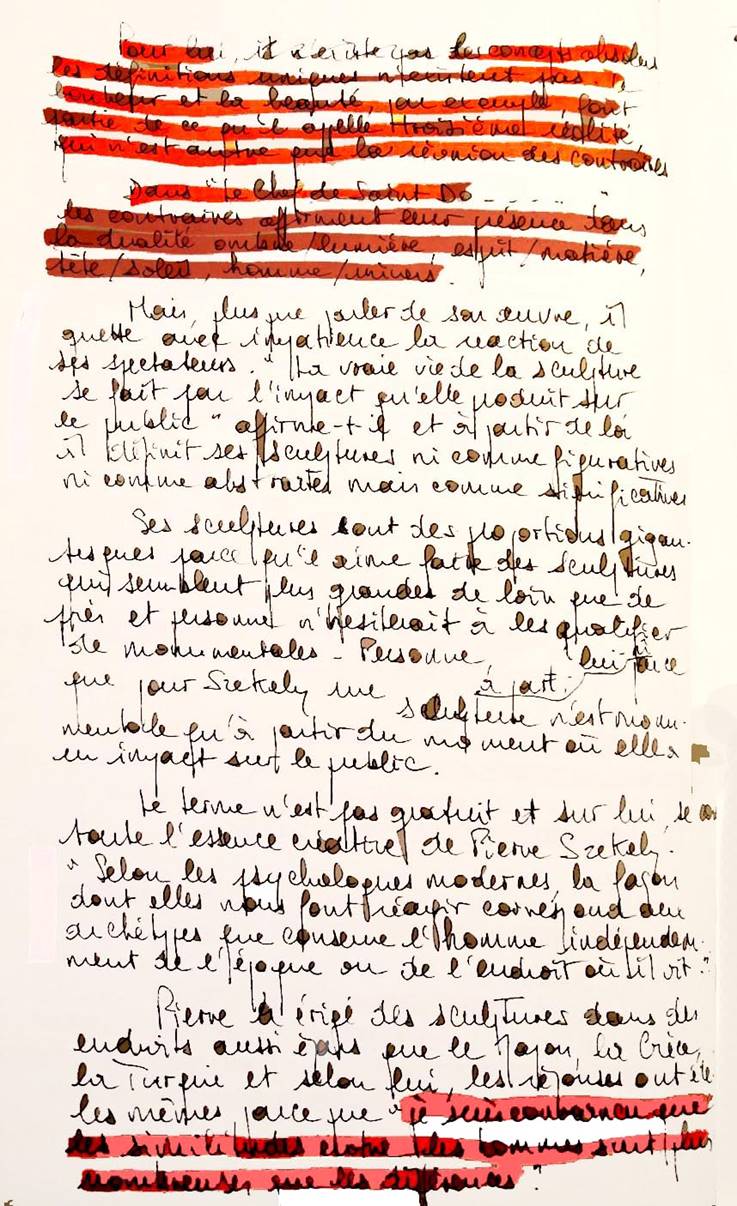 Pour lui, il n'existe pas des concepts absolus
les définitions uniques n'existent pas. Le
bonheur et la beauté, par exemple, font
partie de ce qu'il appelle "troisième réalité"
qui n'est autre que la réunion des contraires
Dans "Le Chef de Saint Do - - - - - "
les contraires affirment leur présence dans
la dualité ombre/lumière, esprit/matière,
tête/soleil, homme/univers.
Mais, plus que parler de son œuvre, il
guette avec impatience la réaction de
ses spectateurs. "La vraie vie de la sculpture
se fait par l'impact qu'elle produit sur
le public" affirme-t-il et à partir de là
il définit ses sculptures ni comme figuratives
ni comme abstraites mais comme significatives
Ses sculptures sont des proportions gigan-
tesques parce qu'il aime faire des sculptures
qui semblent plus grandes de loin que de
près et personne n'hesiterait à les qualifier
de monumentales - Personne, lui
à part, parce
que pour Szekely une
sculpture n'est monu-
mentale qu'à partir du moment où elle a
un impact sur le public.
Le terme n'est pas gratuit et sur lui, se
toute l'essence créatrice de Pierre Szekely.
"Selon les psychologues modernes, la façon
dont elles nous font réagir correspond aux
archétypes que conserve l'homme indépendem-
ment de l'époque ou de l'endroit où il vit."
Pierre a érigé des sculptures dans des
endroits aussi épars que le Japon, la Grèce,
la Turquie et selon lui, les réponses ont été
les mêmes parce que "je suis convaincu que
les similitudes entre les hommes sont plus
nombreuses que les différences".